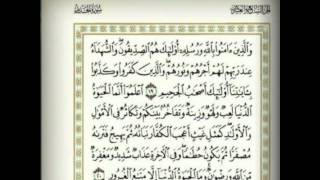 الجزء السابع والعشرون سورة الحديد
وَٱلَّذِينَ ءَامَنُوا۟ بِٱللَّهِ وَرُسُلِهِۦٓ أُو۟لَٰٓئِكَ هُمُ ٱلصِّدِّيقُونَ ۖ وَٱلشُّهَدَآءُ
عِندَ رَبِّهِمْ لَهُمْ أَجْرُهُمْ وَنُورُهُمْ ۖ وَٱلَّذِينَ كَفَرُوا۟ وَكَذَّبُوا۟
بِـَٔايَٰتِنَآ أُو۟لَٰٓئِكَ أَصْحَٰبُ ٱلْجَحِيمِ ١٩ ٱعْلَمُوٓا۟ أَنَّمَا ٱلْحَيَوٰةُ
ٱلدُّنْيَا لَعِبٌ وَلَهْوٌ وَزِينَةٌ وَتَفَاخُرٌۢ بَيْنَكُمْ وَتَكَاثُرٌ فِى ٱلْأَمْوَٰلِ
وَٱلْأَوْلَٰدِ ۖ كَمَثَلِ غَيْثٍ أَعْجَبَ ٱلْكُفَّارَ نَبَاتُهُۥ ثُمَّ يَهِيجُ فَتَرَىٰهُ
مُصْفَرًّا ثُمَّ يَكُونُ حُطَٰمًا ۖ وَفِى ٱلْـَٔاخِرَةِ عَذَابٌ شَدِيدٌ وَمَغْفِرَةٌ
مِّنَ ٱللَّهِ وَرِضْوَٰنٌ ۚ وَمَا ٱلْحَيَوٰةُ ٱلدُّنْيَآ إِلَّا مَتَٰعُ ٱلْغُرُورِ ٢٠